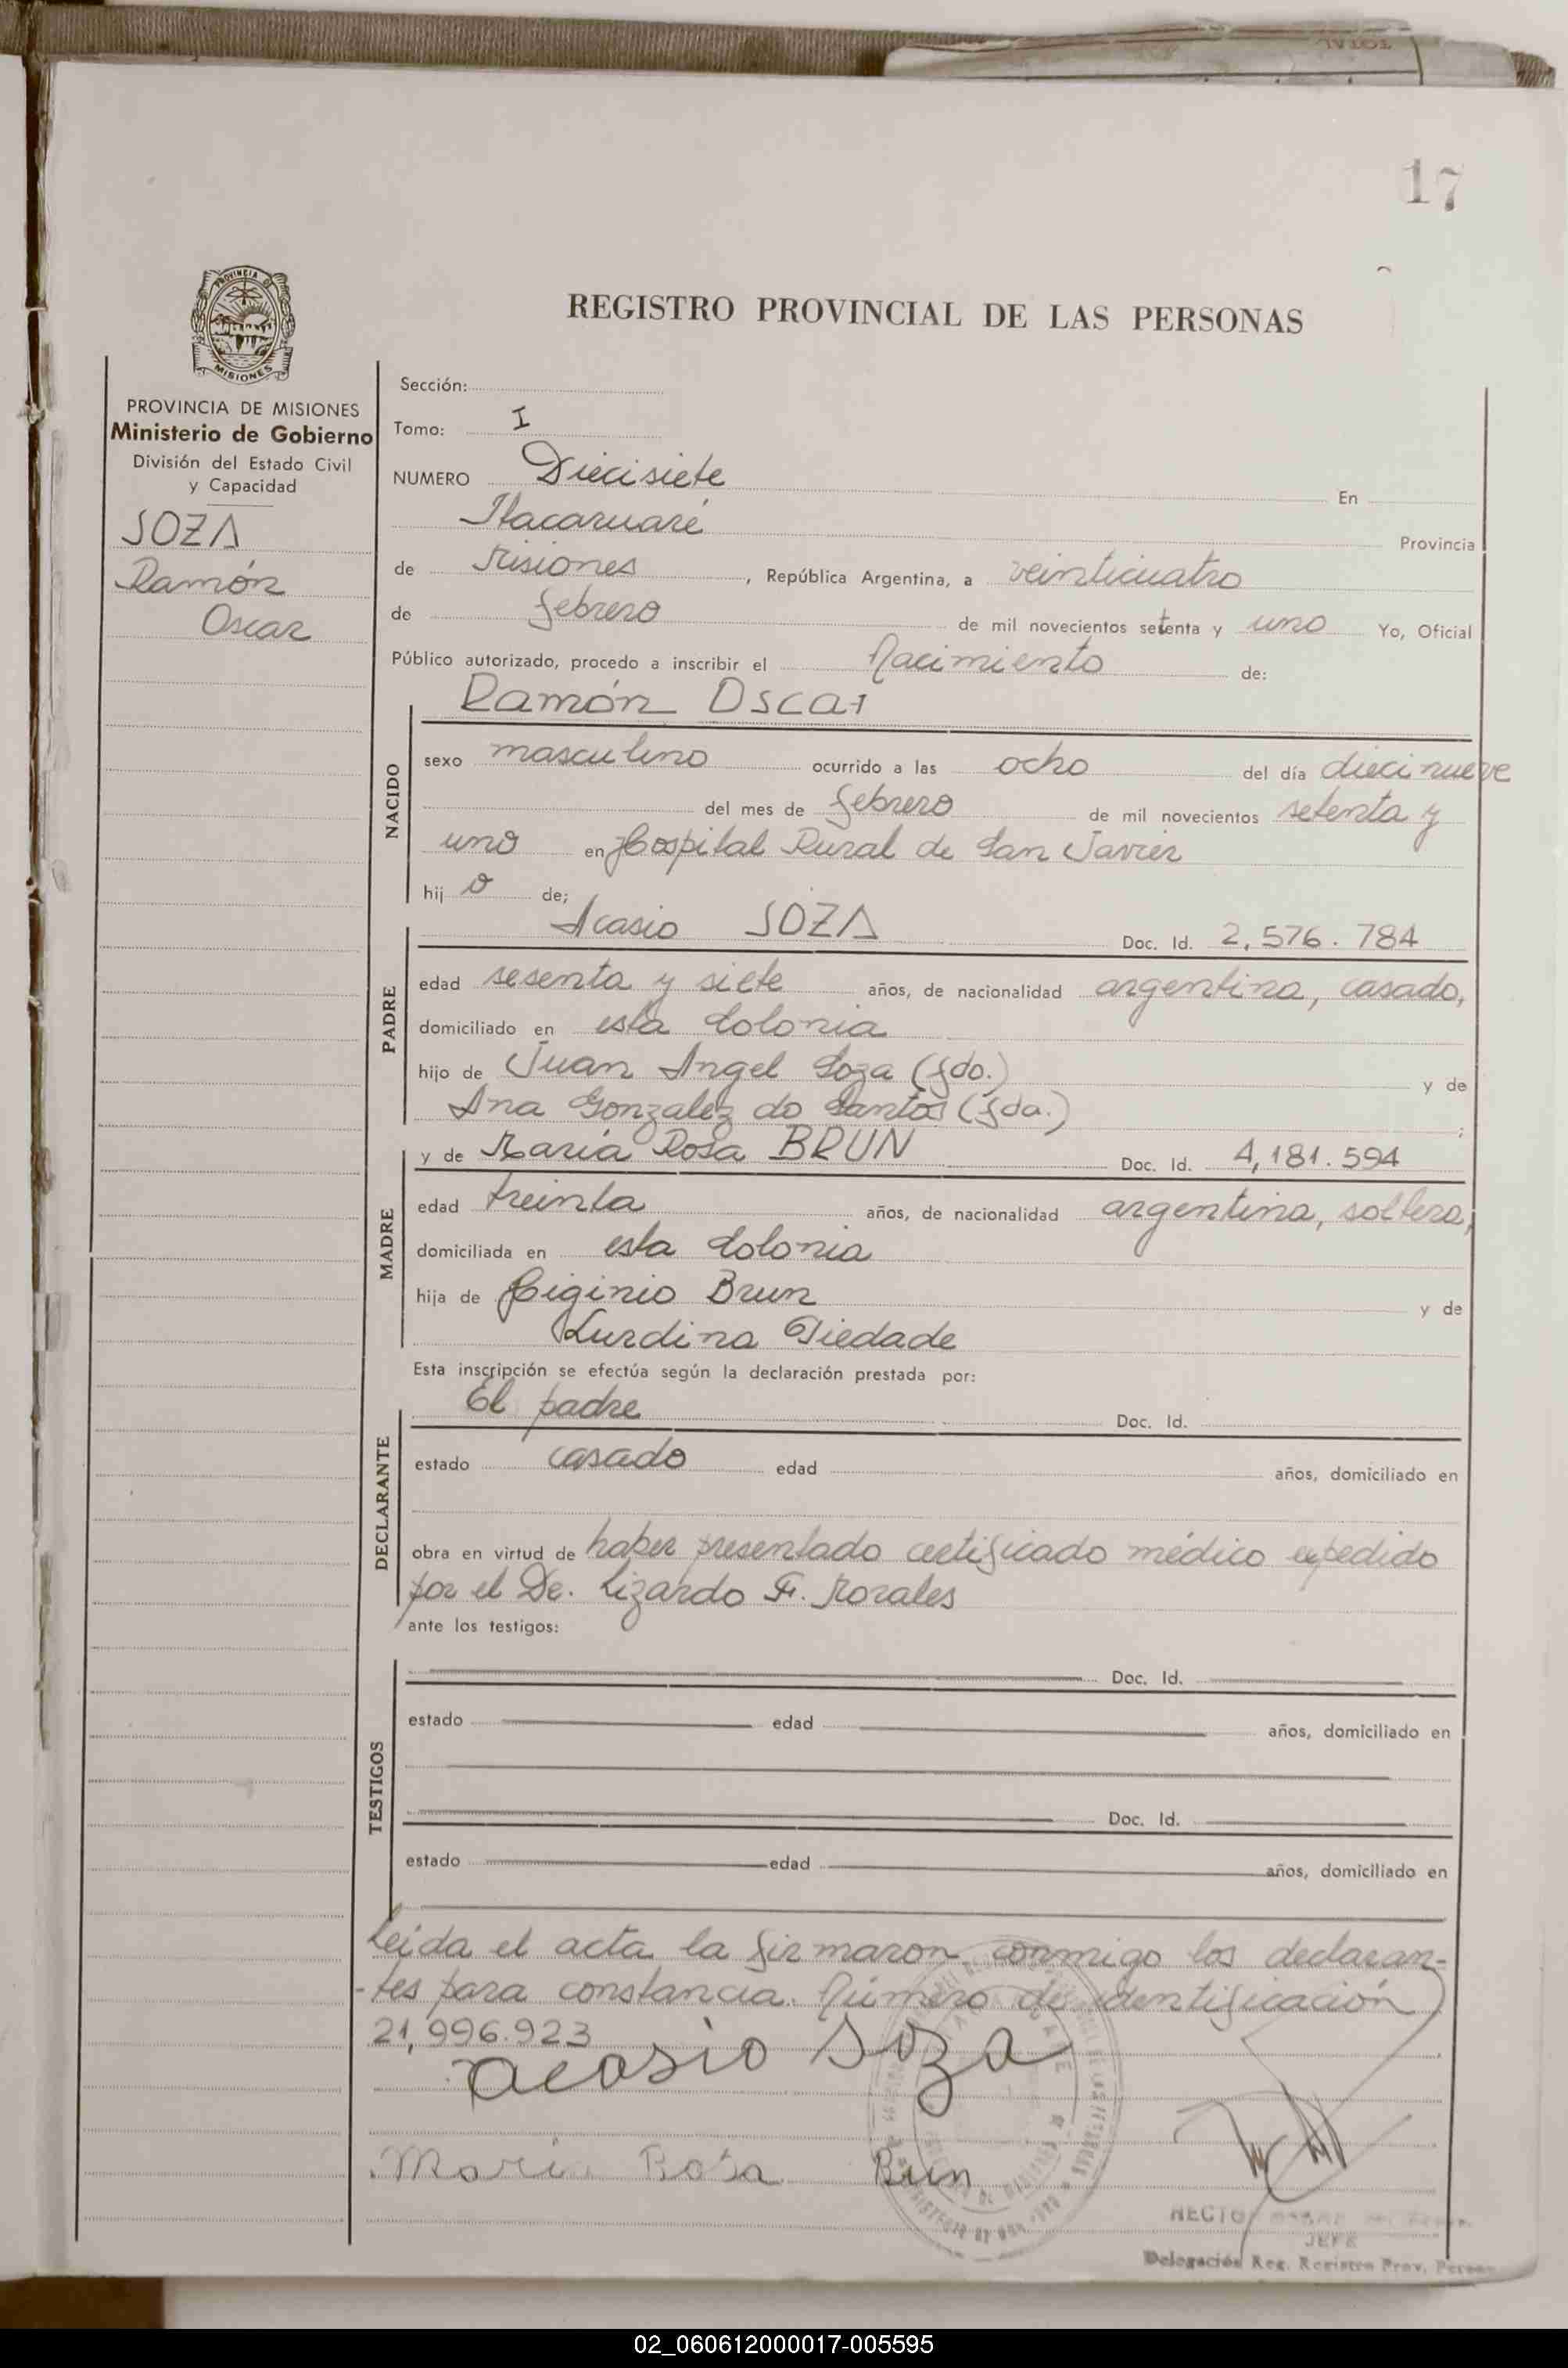 TOTAL
17
PROVINCIA
MISIONES
REGISTRO PROVINCIAL DE LAS PERSONAS
PROVINCIA DE MISIONES
Ministerio de Gobierno
División del Estado Civil
y Capacidad
SOZA
Ramón
Oscar
Sección:
Tomo: I
NUMERO Diecisiete En
Itacaruaré Provincia
de Misiones, República Argentina, a veinticuatro
de febrero de mil novecientos setenta y uno Yo, Oficial
Público autorizado, procedo a inscribir el Nacimiento de:
Ramón Oscar
NACIDO
sexo masculino ocurrido a las ocho del día diecinueve
del mes de febrero de mil novecientos setenta y
uno en Hospital Rural de San Javier
hij o de;
Acasio SOZA Doc. Id. 2,576.784
PADRE
edad sesenta y siete años, de nacionalidad argentina, casado,
domiciliado en esta Colonia
hijo de Juan Angel Soza (fdo.) y de
Ana Gonzalez do Santos (fda.);
y de María Rosa BRUN Doc. Id. 4,181.594
MADRE
edad treinta años, de nacionalidad argentina, soltera,
domiciliada en esta Colonia
hija de Higinio Brun y de
Lurdina Piedade
Esta inscripción se efectúa según la declaración prestada por:
El padre Doc. Id.
DECLARANTE
estado casado edad años, domiciliado en
obra en virtud de haber presentado certificado médico expedido
por el Dr. Lizardo F. Morales
ante los testigos:
Doc. Id.
TESTIGOS
estado edad años, domiciliado en
Doc. Id.
estado edad años, domiciliado en
Leida el acta la firmaron conmigo los declaran-
-tes para constancia. Número de identificación
21,996.923
acasio Soza
Maria Rosa Brun
HECTOR
JEFE
Delegación Reg. Registro Prov. Person
02_060612000017-005595